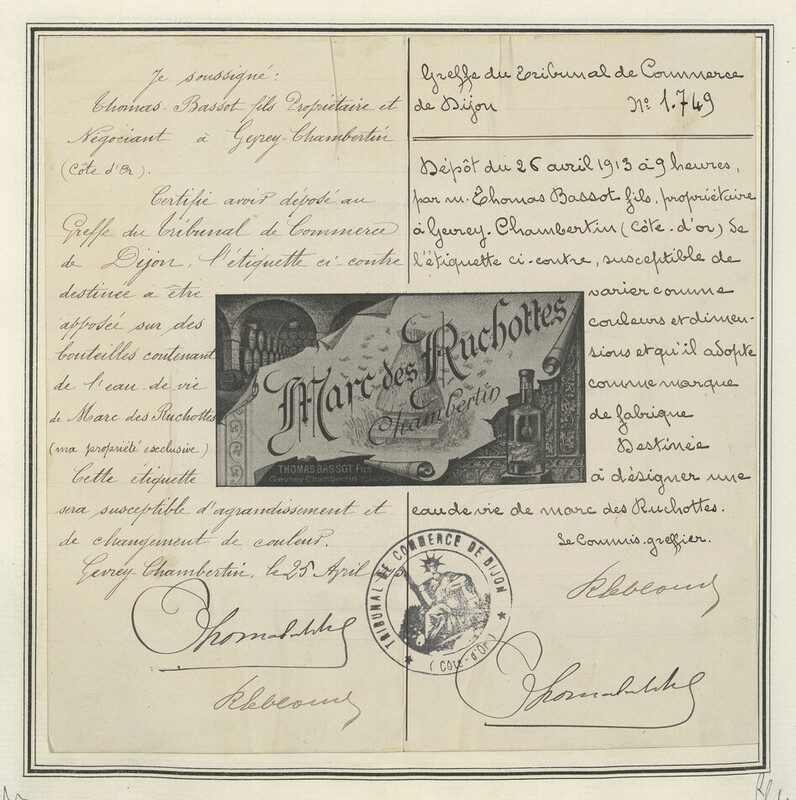 Je soussigné:
Thomas Bassot fils Propriétaire et
Négociant à Gevrey-Chambertin
(Côte d'Or).
Certifie avoir déposé au
Greffe du Tribunal de Commerce
de Dijon, l'étiquette ci-contre
destinée à être
apposée sur des
bouteilles contenant
de l'eau-de-vie
de Marc des Ruchottes
(ma propriété exclusive)
Cette étiquette
sera susceptible d'agrandissement et
de changement de couleur.
Gevrey Chambertin, le 25 April
Marc des Ruchottes
Chambertin
THOMAS BASSOT Fils
Gevrey Chambertin
Greffe du Tribunal de Commerce
de Dijon No 1.749
Dépôt du 26 avril 1913 à 9 heures,
par m. Thomas Bassot fils, propriétaire
à Gevrey-Chambertin (Côte-d'or) de
l'étiquette ci-contre, susceptible de
varier comme
couleurs et dimen-
sions et qu'il adopte
comme marque
de fabrique
Destinée
à désigner une
eau de vie de marc des Ruchottes.
Le Commis-greffier.
TRIBUNAL DE COMMERCE DE DIJON
(Côte-d'Or)